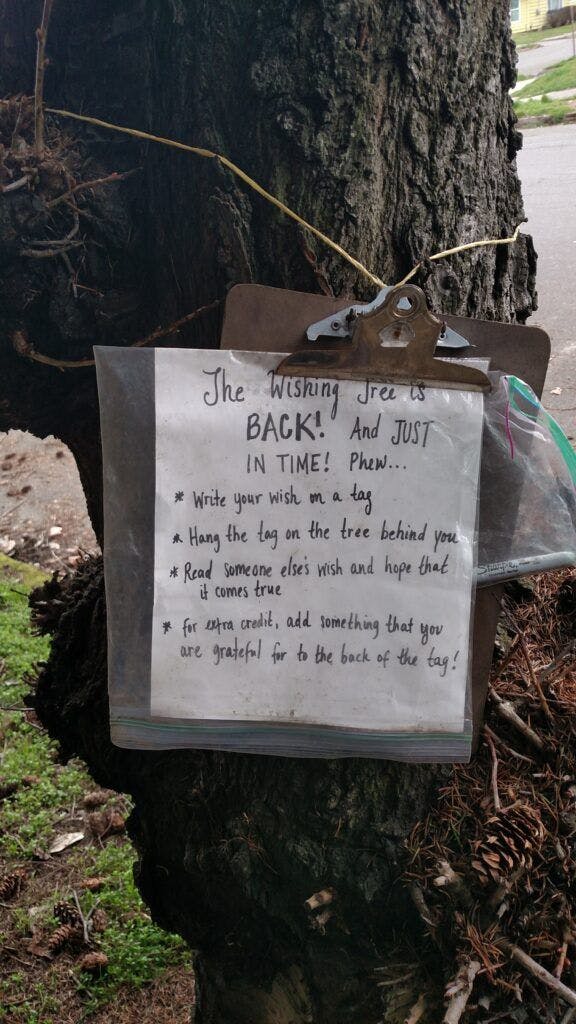 The Wishing Tree is
BACK! And JUST
IN TIME! Phew...
* Write your wish on a tag
* Hang the tag on the tree behind you
* Read someone else's wish and hope that
it comes true
* for extra credit, add something that you
are grateful for to the back of the tag!